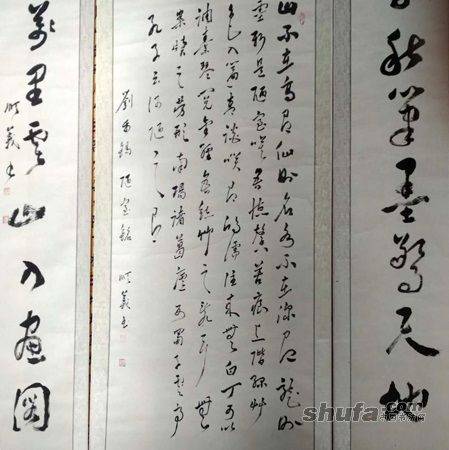 秋筆墨驚天地
山不在高有仙則名水不在深有龍則
靈斯是陋室唯吾德馨苔痕上階綠草
色入簾青談笑有鴻儒往來無白丁可以
調素琴閱金經無絲竹之亂耳無
案牘之勞形南陽諸葛廬西蜀子雲亭
孔子云何陋之有
劉禹錫陋室銘 順義書
萬里雲山入畫圖
順義書
shufa.com